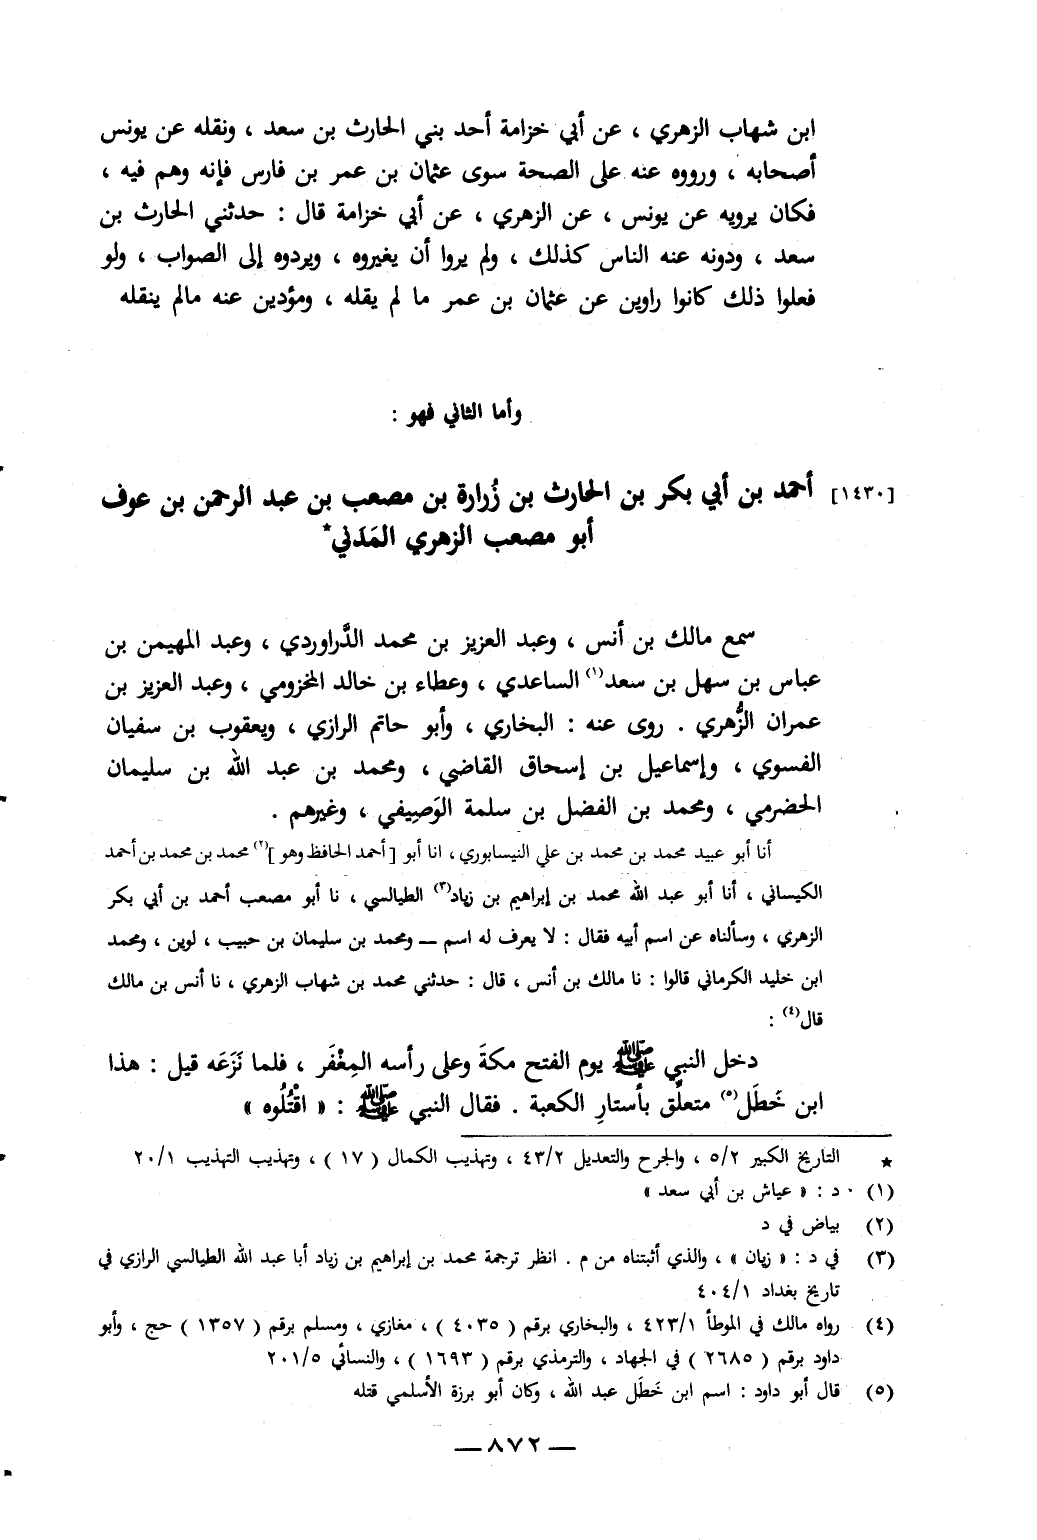 ابن شهاب الزهري ، عن أبي خزامة أحد بني الحارث بن سعد ، ونقله عن يونس
أصحابه ، ورووه عنه على الصحة سوى عثمان بن عمر بن فارس فإنه وهم فيه ،
فكان يرويه عن يونس ، عن الزهري ، عن أبي خزامة قال : حدثني الحارث بن
سعد ، ودونه عنه الناس كذلك ، ولم يروا أن يغيروه ، ويردوه إلى الصواب ، ولو
فعلوا ذلك كانوا راوين عن عثمان بن عمر ما لم يقله ، ومؤدين عنه مالم ينقله
وأما الثاني فهو :
[١٤٣٠] أحمد بن أبي بكر بن الحارث بن زُرارة بن مصعب بن عبد الرحمن بن عوف
أبو مصعب الزهري المَدَني*
سمع مالك بن أنس ، وعبد العزيز بن محمد الدَّراوردي ، وعبد المهيمن بن
عباس بن سهل بن سعد(١) الساعدي ، وعطاء بن خالد المخزومي ، وعبد العزيز بن
عمران الزُّهري . روى عنه : البخاري ، وأبو حاتم الرازي ، ويعقوب بن سفيان
الفسوي ، وإسماعيل بن إسحاق القاضي ، ومحمد بن عبد الله بن سليمان
الحضرمي ، ومحمد بن الفضل بن سلمة الوَصِيفي ، وغيرهم .
أنا أبو عبيد محمد بن محمد بن علي النيسابوري ، انا أبو [ أحمد الحافظ وهو ](٢) محمد بن محمد بن أحمد
الكيساني ، أنا أبو عبد الله محمد بن إبراهيم بن زياد(٣) الطيالسي ، نا أبو مصعب أحمد بن أبي بكر
الزهري ، وسألناه عن اسم أبيه فقال : لا يعرف له اسم — ومحمد بن سليمان بن حبيب ، لوين ، ومحمد
ابن خليد الكرماني قالوا : نا مالك بن أنس ، قال : حدثني محمد بن شهاب الزهري ، نا أنس بن مالك
قال(٤) :
دخل النبي ﷺ يوم الفتح مكةَ وعلى رأسه المِغْفَر ، فلما نَزَعَه قيل : هذا
ابن خَطَل(٥) متعلِّق بأستارِ الكعبة . فقال النبي ﷺ : « اقْتُلُوه »
★ التاريخ الكبير ٥/٢ ، والجرح والتعديل ٤٣/٢ ، وتهذيب الكمال ( ١٧ ) ، وتهذيب التهذيب ٢٠/١
(١) د : « عياش بن أبي سعد »
(٢) بياض في د
(٣) في د : « زيان » ، والذي أثبتناه من م . انظر ترجمة محمد بن إبراهيم بن زياد أبا عبد الله الطيالسي الرازي في
تاريخ بغداد ٤٠٤/١
(٤) رواه مالك في الموطأ ٤٢٣/١ ، والبخاري برقم ( ٤٠٣٥ ) ، مغازي ، ومسلم برقم ( ١٣٥٧ ) حج ، وأبو
داود برقم ( ٢٦٨٥ ) في الجهاد ، والترمذي برقم ( ١٦٩٣ ) ، والنسائي ٢٠١/٥
(٥) قال أبو داود : اسم ابن خَطَل عبد الله ، وكان أبو برزة الأسلمي قتله
— ٨٧٢ —